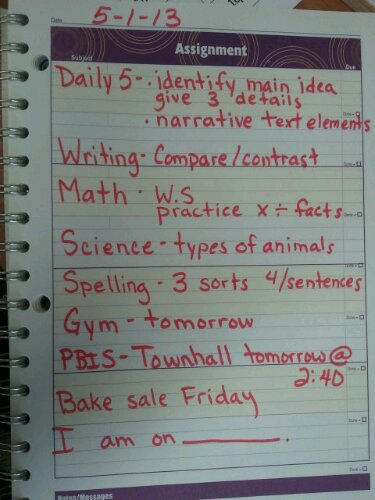 Date 5-1-13
Subject Assignment Due
Daily 5- · identify main idea
give 3 details
· narrative text elements
Done
Writing- Compare/contrast
Math - W.S
practice x ÷ facts
Done
Science - types of animals
Done
Spelling - 3 sorts 4/sentences
Done
Gym - tomorrow
Done
PBIS - Townhall tomorrow @
2:40
Done
Bake sale Friday
Done
I am on ________.
Done
Notes/Messages